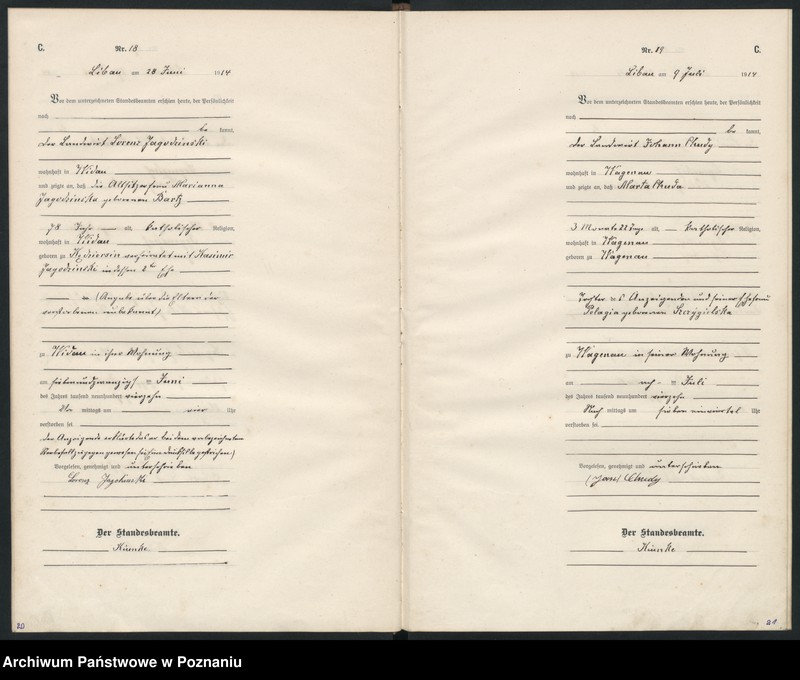 C.
Nr. 18
Libau am 28 Juni 1914
Vor dem unterzeichneten Standesbeamten erschien heute, der Persönlichkeit
nach
be kannt,
der Landwirt Lorenz Jagodzinski
wohnhaft in Widau
und zeigte an, daß die Altsitzerfrau Marianna
Jagodzinska geborenen Bartz
78 Jahr alt, katholischer Religion,
wohnhaft in Widau
geboren zu verheiratet mit Kasimir
Jagodzinski in dessen 2ter Ehe
(Angabe über die Eltern der
verstorbenen unbekannt)
zu Widau in ihrer Wohnung
am siebenundzwanzigsten Juni
des Jahres tausend neunhundert vierzehn
mittags um vier Uhr
verstorben sei
der Anzeigende erklärte das er bei dem
Sterbefall zugegen gewesen sei
Vorgelesen, genehmigt und unterschrieben
Lorenz Jagodzinski
Der Standesbeamte.
20
Nr. 19
C.
Libau am 9 Juli 1914
Vor dem unterzeichneten Standesbeamten erschien heute, der Persönlichkeit
nach
be kannt,
der Landwirt Johann Chudy
wohnhaft in Wagenau
und zeigte an, daß Marta Chuda
3 Monate 22 Tage alt, katholischer Religion,
wohnhaft in Wagenau
geboren zu Wagenau
Tochter des Anzeigenden und seiner Ehefrau
Pelagia geborenen Szczygielska
zu Wagenau in seiner Wohnung
am Juli
des Jahres tausend neunhundert vierzehn
Nach mittags um sieben einviertel Uhr
verstorben sei
Vorgelesen, genehmigt und unterschrieben
(Jan) Chudy
Der Standesbeamte.
21
Archiwum Państwowe w Poznaniu